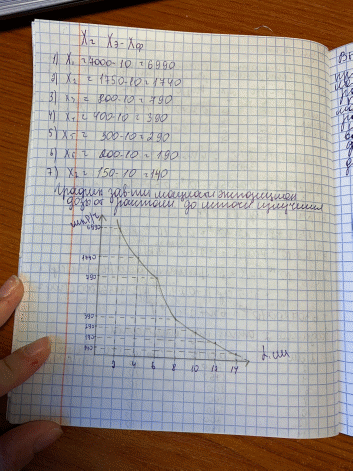 Xг Xэ-Xф
1) X₁ = 7000-10 = 6990
2) X₂ = 1750-10 = 1740
3) X₃ = 800-10 = 790
4) X₄ = 400-10 = 390
5) X₅ = 300-10 = 290
6) X₆ = 200-10 = 190
7) X₇ = 150-10 = 140
График зав-ти мощности экспозицион
дозы от расстоян до источн излучения
мкР/ч
6990
1740
790
390
290
190
140
2 4 6 8 10 12 14